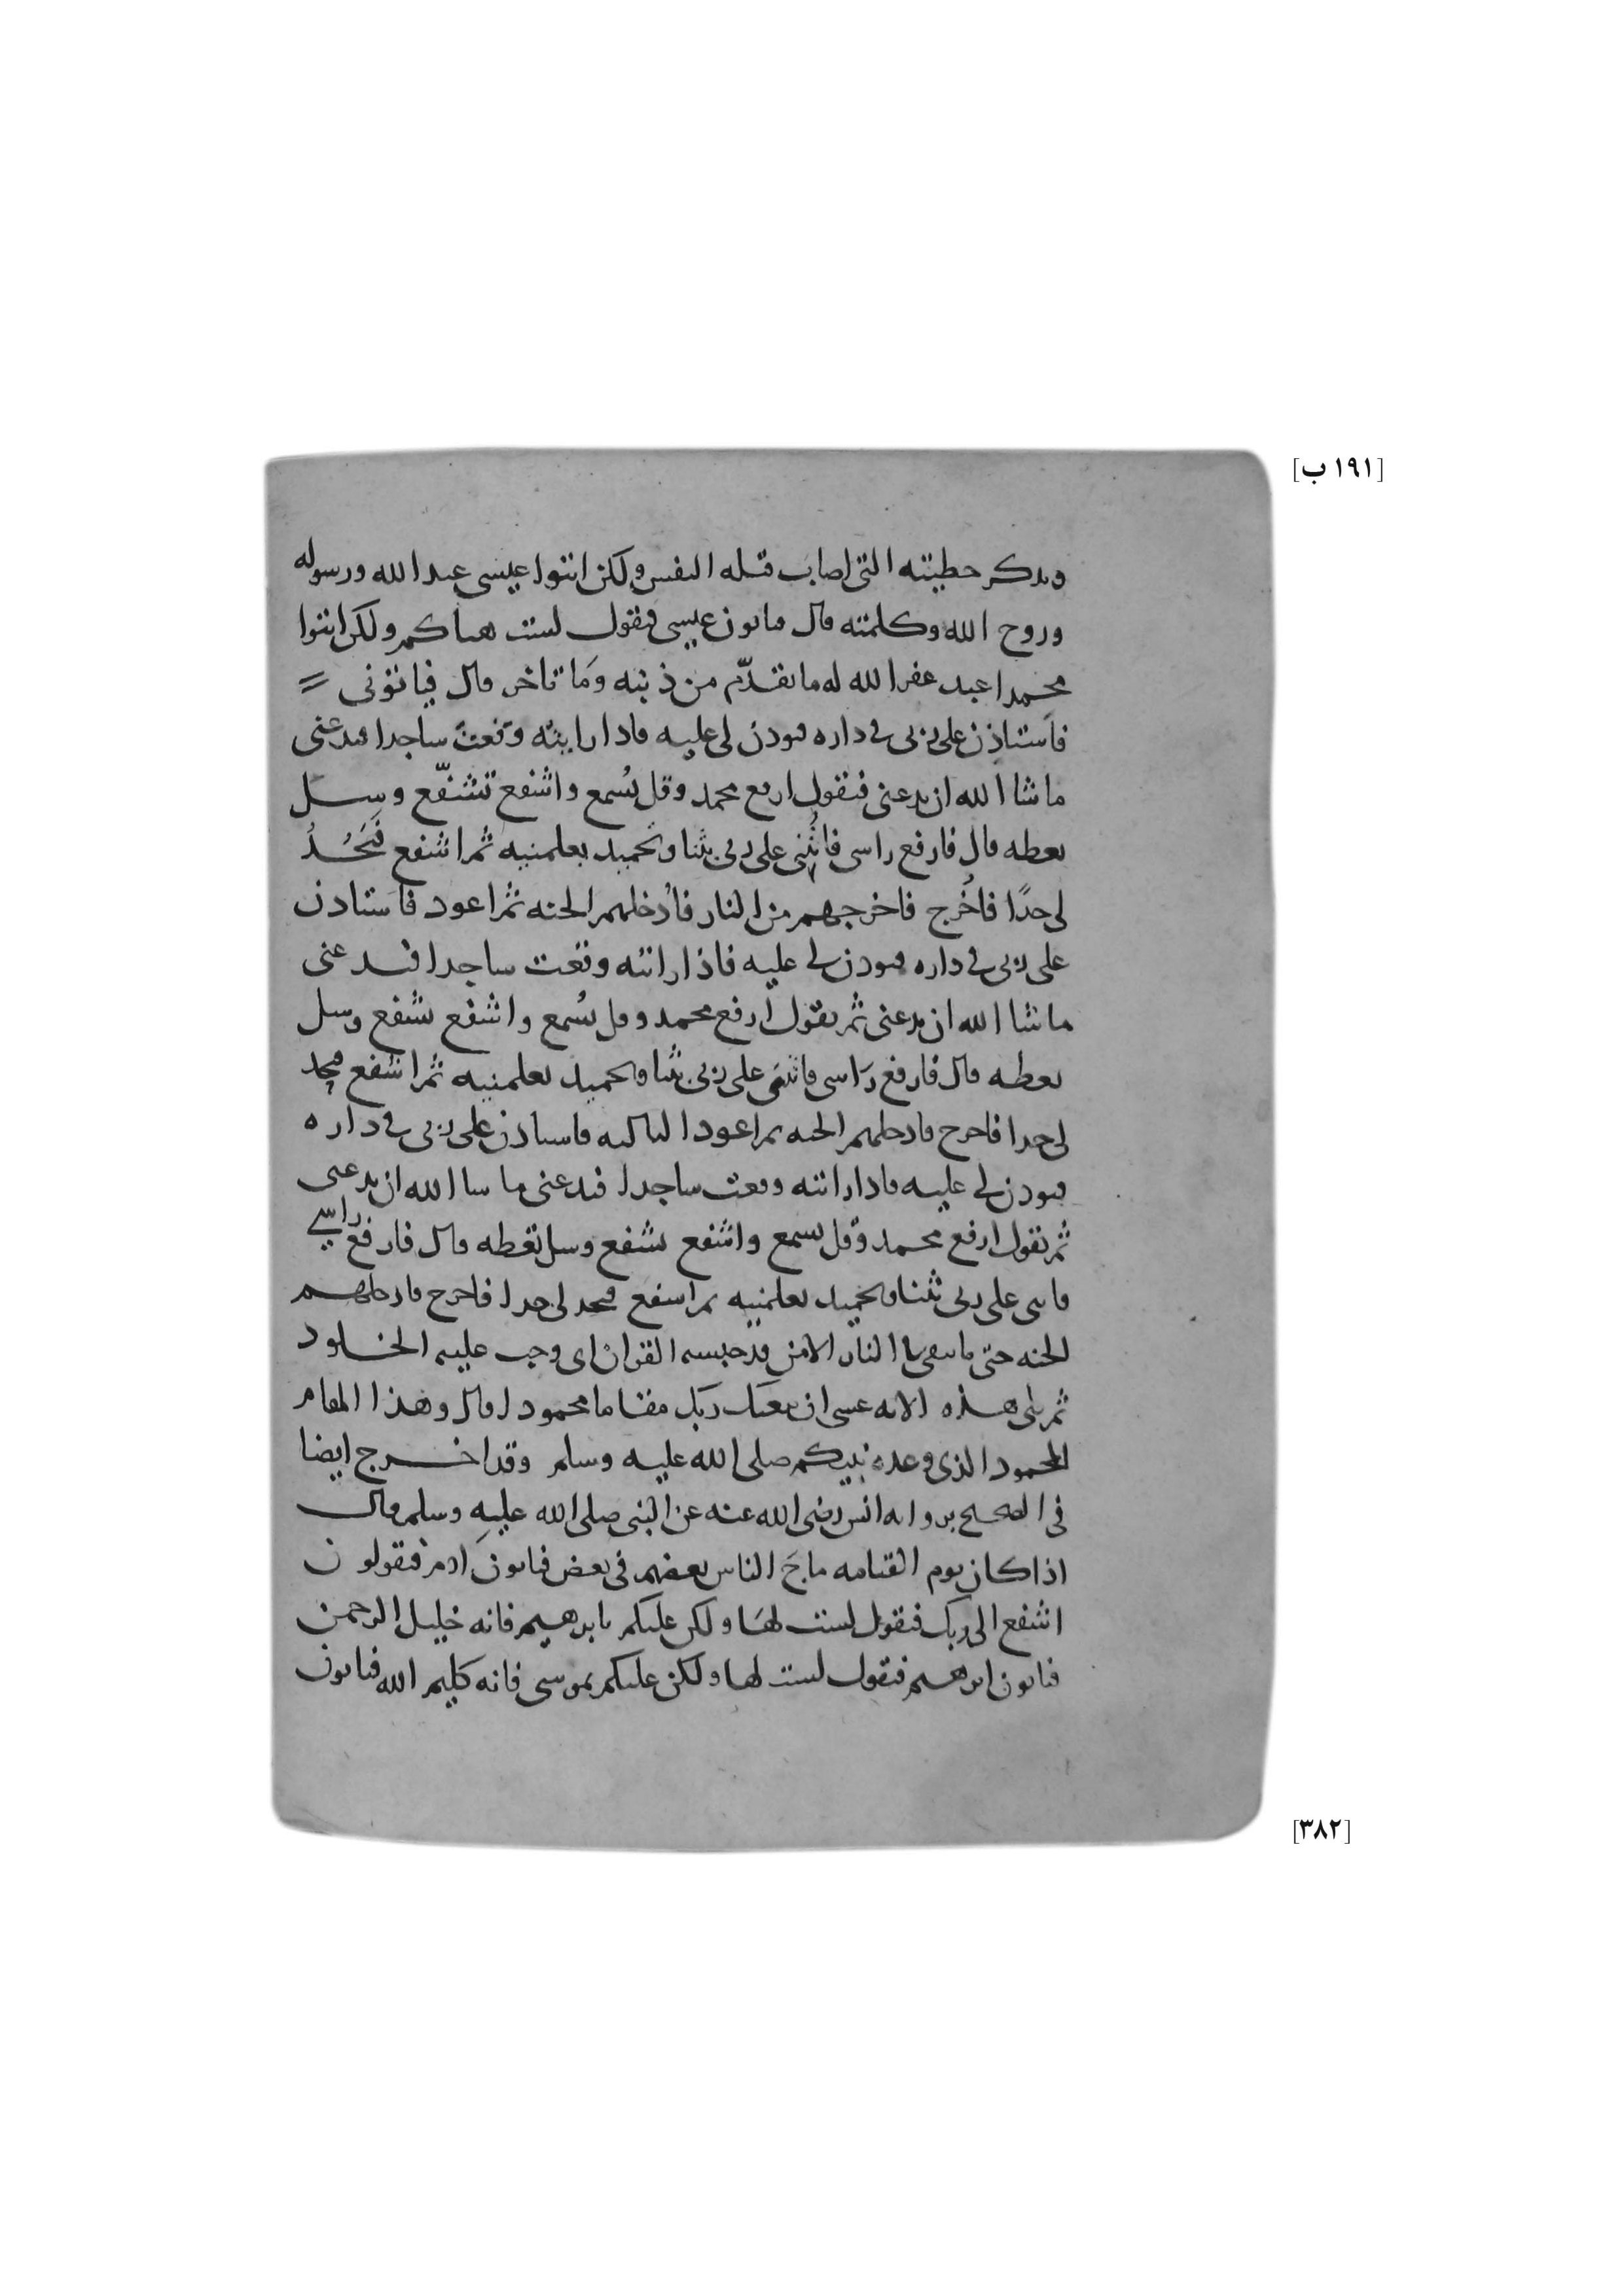 [١٩١ ب]
ويذكر خطيئته التى اصاب قتله النفس ولكن ائتوا عيسى عبد الله ورسوله
وروح الله وكلمته قال فياتون عيسى فيقول لست هناكم ولكن ائتوا
محمدا عبد غفر الله له ما تقدّم من ذنبه وَما تاخر قال فياتونى
فاَستاذن على ربى فى داره فيوذن لى عليه فاذا رايته وَقعتُ ساجدا فيدعنى
ما شا الله ان يدعنى فيقول ارفع محمد وقل يُسمع واشفع تشفّع وسل
تعطه قال فارفع راسى فاُثنى على ربى بثنا وتحميد يعلمنيه ثم اشفع فيَحُدُّ
لى حدًا فاَخُرج فاخرجهم من النار فاُدخلهم الجنه ثم اعود فاستاذن
على ربى فى داره فيوذن لى عليه فاذا رايته وقعت ساجدا فيدعنى
ما شا الله ان يدعنى ثم يقول ارفع محمد وقل يُسمع واشفع تشفع وسل
تعطه قال فارفع رَاسى فاثنى على ربى بثنا وتحميد يعلمنيه ثم اشفع فيحد
لى حدا فاخرج فادخلهم الجنه ثم اعود الثالثه فاستاذن على ربى فى داره
فيوذن لى عليه فاذا رايته وقعت ساجدا فيدعنى ما شا الله ان يدعنى
ثم يقول ارفع محمد وقل يسمع واشفع تشفع وسل تعطه قال فارفع راسى
فاثنى على ربى بثنا وتحميد يعلمنيه ثم اشفع فيحد لى حدا فاخرج فادخلهم
الجنه حتى ما يبقى فى النار الا من قد حبسه القران اى وجب عليه الخلود
ثم تلى هذه الايه عسى ان يبعثك ربك مقاما محمودا قال وهذا المقام
المحمود الذى وعده نبيكم صلى الله عليه وسلم وقد اخرج ايضا
فى الصحيح بروايه انس رضى الله عنه عن النبى صلى الله عليه وسلم قال
اذا كان يوم القيامه ماجَ الناس بعضهم فى بعض فياتون ادم فيقولون
اشفع الى ربك فيقول لست لها ولكن عليكم بابرهيم فانه خليل الرحمن
فياتون ابرهيم فيقول لست لها ولكن عليكم بموسى فانه كليم الله فياتون
[٣٨٢]